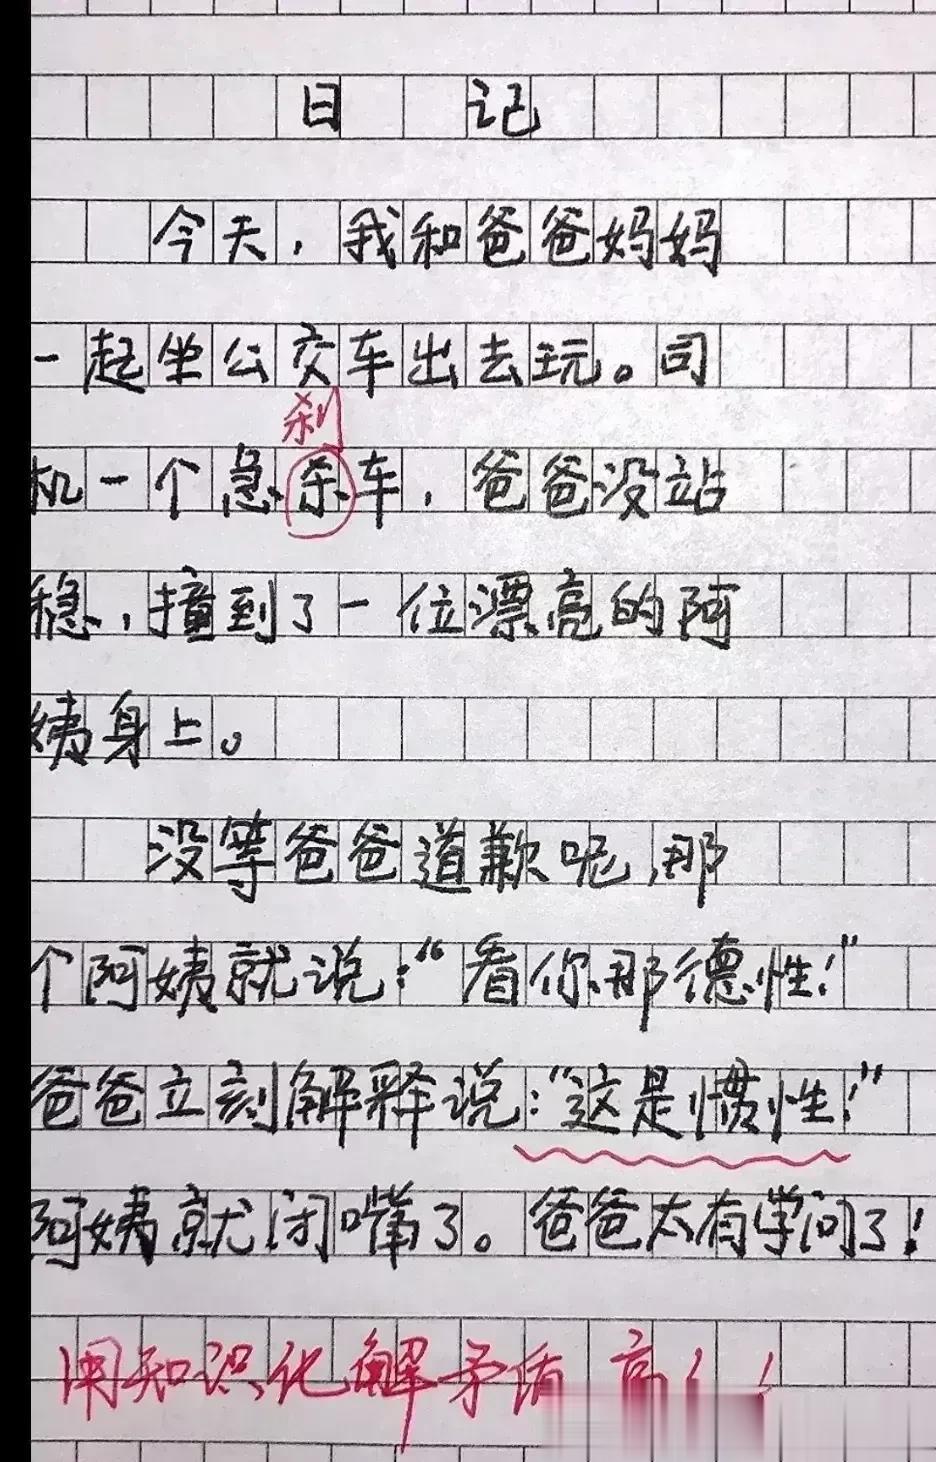 日 记
今天，我和爸爸妈妈
一起坐公交车出去玩。司
刹
机一个急杀车，爸爸没站
稳，撞到了一位漂亮的阿
姨身上。
没等爸爸道歉呢，那
个阿姨就说：“看你那德性！”
爸爸立刻解释说：“这是惯性！”
阿姨就闭嘴了。爸爸太有学问了！
用知识化解矛盾 高！！